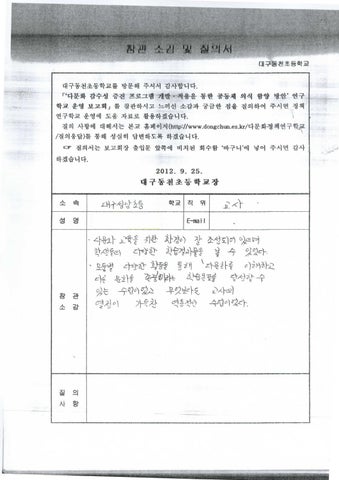 참관 소감 및 질의서
대구동천초등학교
대구동천초등학교를 방문해 주셔서 감사합니다.
「'다문화 감수성 증진 프로그램 개발·적용을 통한 공동체 의식 함양 방안' 연구
학교 운영 보고회」를 참관하시고 느끼신 소감과 궁금한 점을 질의하여 주시면 정책
연구학교 운영에 도움 자료로 활용하겠습니다.
질의 사항에 대해서는 본교 홈페이지(http://www.dongchun.es.kr/다문화정책연구학교
/질의응답)를 통해 성실히 답변하도록 하겠습니다.
☞ 질의서는 보고회장 출입문 앞쪽에 비치된 회수함 '바구니'에 넣어 주시면 감사
하겠습니다.
2012. 9. 25.
대구동천초등학교장
소 속 학교 직 위 교사
성 명 E-mail
· 다문화 교육을 위한 환경이 잘 조성되어 있으며
학생들의 다양한 학습결과물을 볼 수 있었다.
· 모둠별 다양한 활동을 통해 다문화를 이해하고
다른 문화를
있는 수업이었고 무엇보다도 교사의
열정이 가득한 수업이었다.
참 관
소 감
질 의
사 항